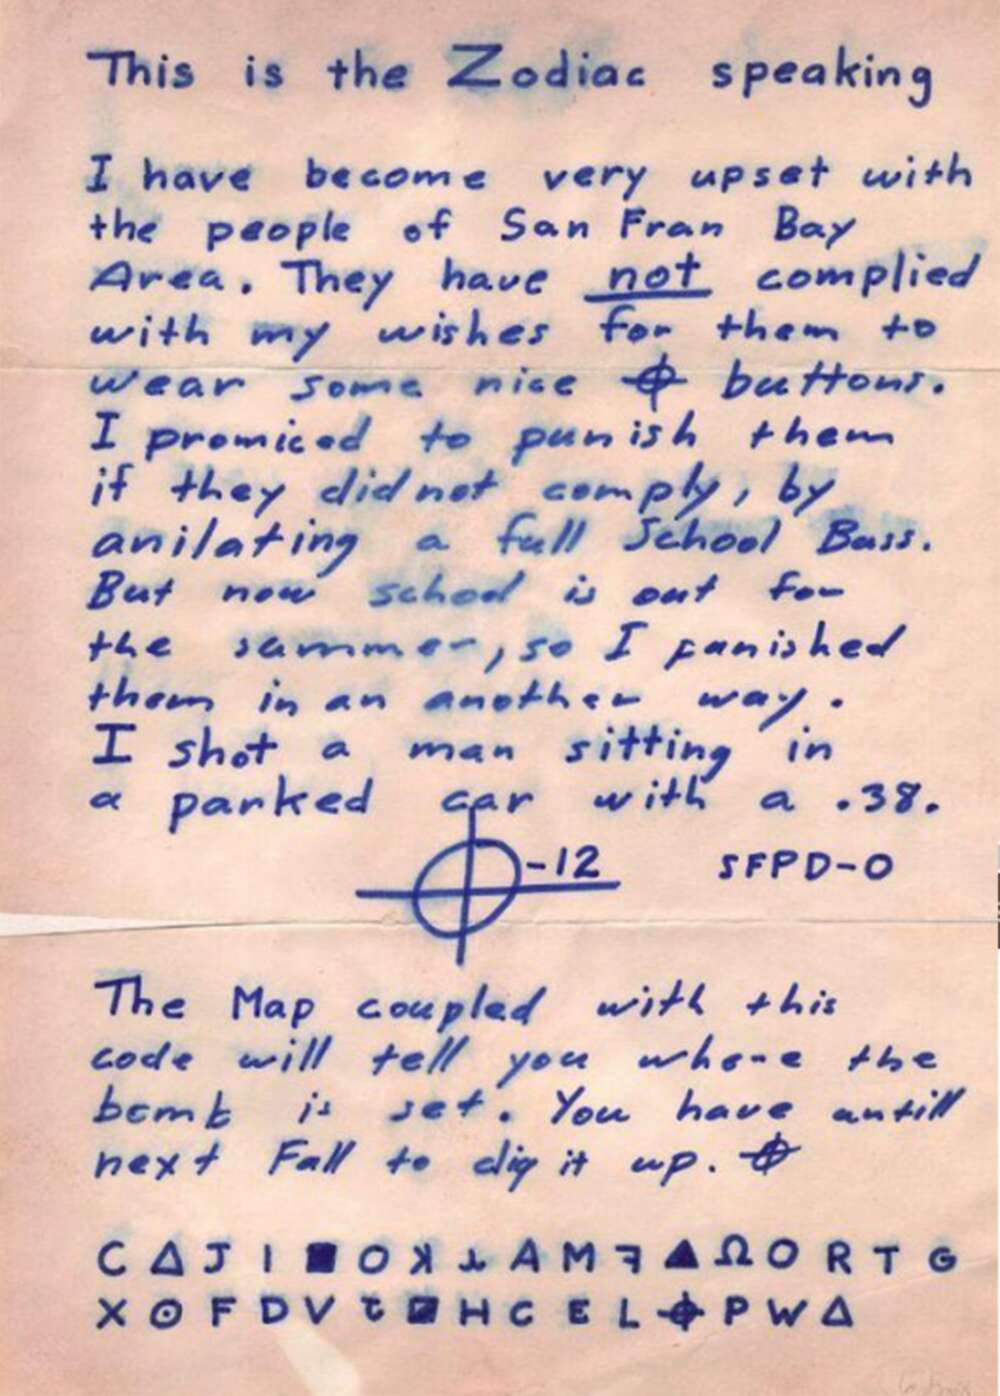 This is the Zodiac speaking
I have become very upset with
the people of San Fran Bay
Area. They have not complied
with my wishes for them to
wear some nice ⌖ buttons.
I promiced to punish them
if they did not comply, by
anilating a full School Buss.
But now school is out for
the summer, so I punished
them in an another way.
I shot a man sitting in
a parked car with a .38.
⌖-12 SFPD-0
The Map coupled with this
code will tell you where the
bomb is set. You have untill
next Fall to dig it up. ⌖
C Δ J I ■ O ꓘ ⅄ A M ꟻ ▲ Ω O R T G
X ⊙ F D V ꞇ ◪ H C E L ⌖ P W Δ